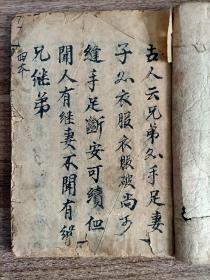 古人云兄弟如手足妻
子如衣服衣服破尚可
縫手足斷安可續但
聞人有継妻不聞有継
兄继弟
四本